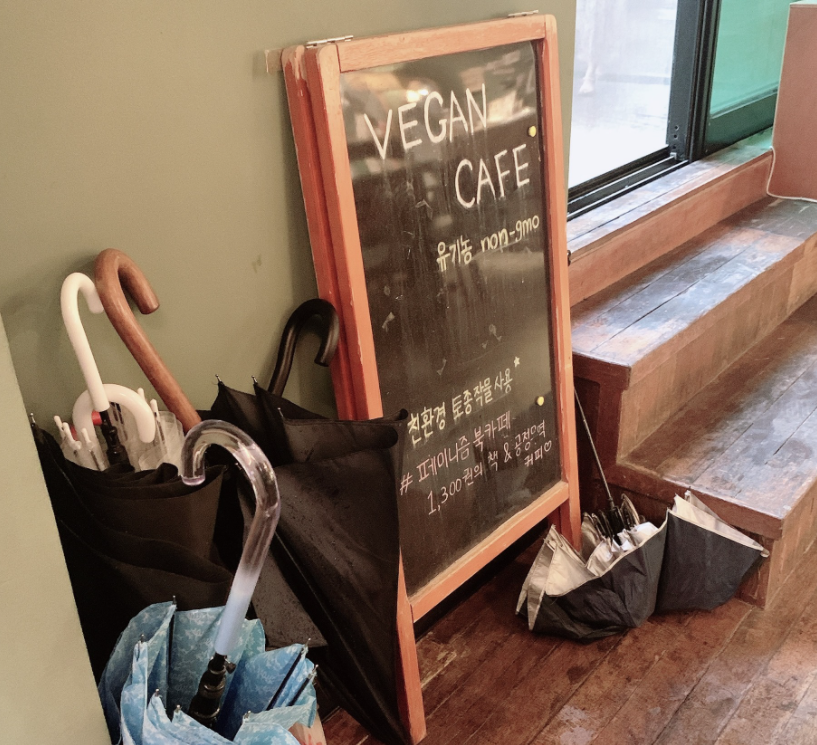 VEGAN
CAFE
유기농 non-gmo
친환경 토종작물 사용*
# 페미니즘 북카페
1,300권의 책 & 공정무역
커피♡